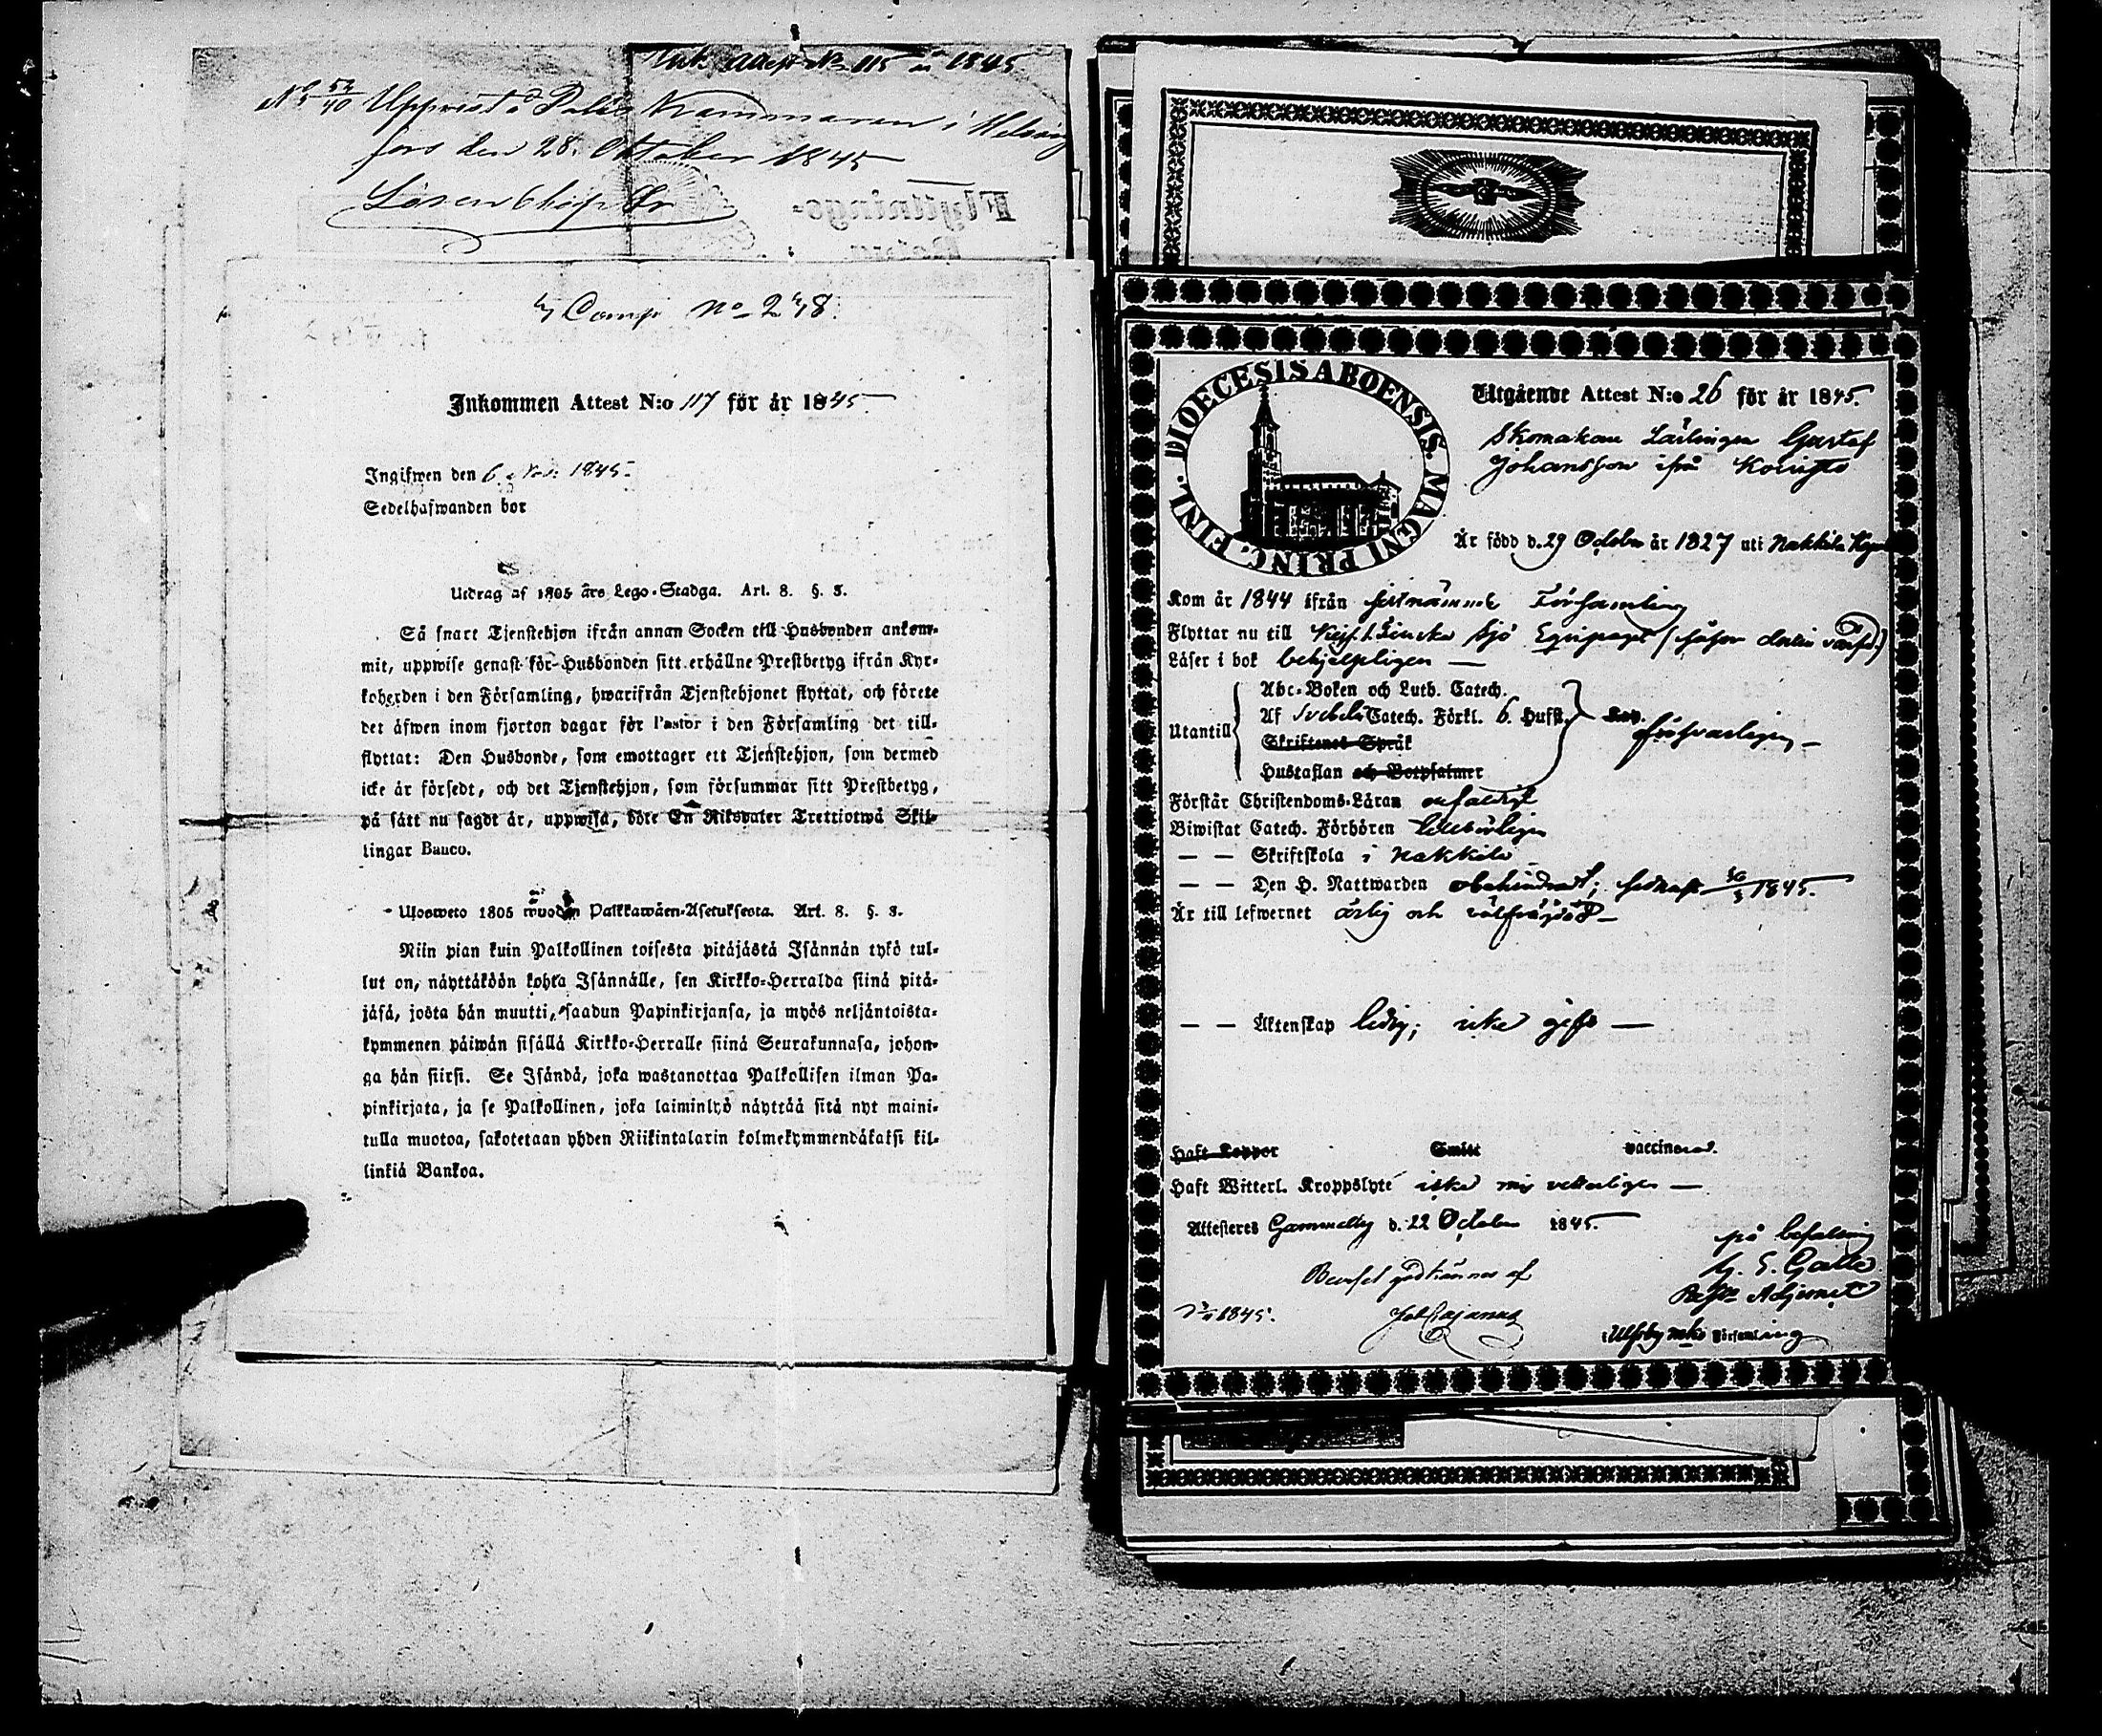 Ink. Attest No 115 år 1845
No 54/40 Uppvist å Polis Kammaren i Helsing
fors den 28. Oktober 1845
Lösen 6 kop Sr
Flyttnings-
4 Comp No 248.
Inkommen Attest N:o 117 för år 1845.
Ingifwen den 6. Nov: 1845.
Sedelhafwanden bor
Utdrag af 1805 års Lego-Stadga. Art. 8. §. 3.
Så snart Tjenstehjon ifrån annan Socken till Husbonden ankom-
mit, uppwise genast för Husbonden sitt erhållne Prestbetyg ifrån Kyr-
koherden i den Församling, hwarifrån Tjenstehjonet flyttat, och förete
det äfwen inom fjorton dagar för Pastor i den Församling det till-
flyttat: Den Husbonde, som emottager ett Tjenstehjon, som dermed
icke är försedt, och det Tjenstehjon, som försummar sitt Prestbetyg,
på sätt nu sagdt är, uppwisa, böte En Riksdaler Trettiotwå Skil-
lingar Banco.
Ulosweto 1805 wuoden Palkkawäen-Asetuksesta. Art. 8. §. 3.
Niin pian kuin Palkollinen toisesta pitäjästä Isännän tykö tul-
lut on, näyttäköön kohta Isännälle, sen Kirkko-Herralda siinä pitä-
jäsä, josta hän muutti, saadun Papinkirjansa, ja myös neljäntoista-
kymmenen päiwän sisällä Kirkko-Herralle siinä Seurakunnasa, johon-
ga hän siirsi. Se Isändä, joka wastanottaa Palkollisen ilman Pa-
pinkirjata, ja se Palkollinen, joka laiminlyö näyttää sitä nyt maini-
tulla muotoa, sakotetaan yhden Riikintalarin kolmekymmendäkaksi kil-
linkiä Bankoa.
DIOECESIS ABOENSIS. MAGNI PRINC. FINL.
Utgående Attest N:o 26 för år 1845.
Skomakare Lärlingen Gustaf
Johansson ifrån Koivisto
Är född d. 29 October år 1827 uti Nakkila Kap
Kom år 1844 ifrån sistnämnde Församling
Flyttar nu till Kejs. Finska Sjö Equipaget (såsom derlin värfd.)
Läser i bok behjelpligen —
Utantill
Abc-Boken och Luth. Catech.
Af Svebeli Catech. Förkl. 6. Hufst. Kap.
Skriftenes Språk
Hustaflan och Botpsalmer
försvarligen —
Förstår Christendoms-Läran enfaldigt
Biwistat Catech. Förhören behörligen
— — Skriftskola i Nakkila
— — Den H. Nattwarden obehindrad; sednast 30/3 1845.
Är till lefwernet ärlig och välfrägdad —
— — Äktenskap ledig; icke gift —
Haft Koppor Smitt vaccinerad.
Haft Witterl. Kroppslyte icke mig vetterligen —
Attesteras Gammelby d. 22 October 1845.
på befallning
G. E. Gallé
Past. Adjunct
i Ulfsby norka Församling
Beviset godkännes af
1845.
Joh Cajanus